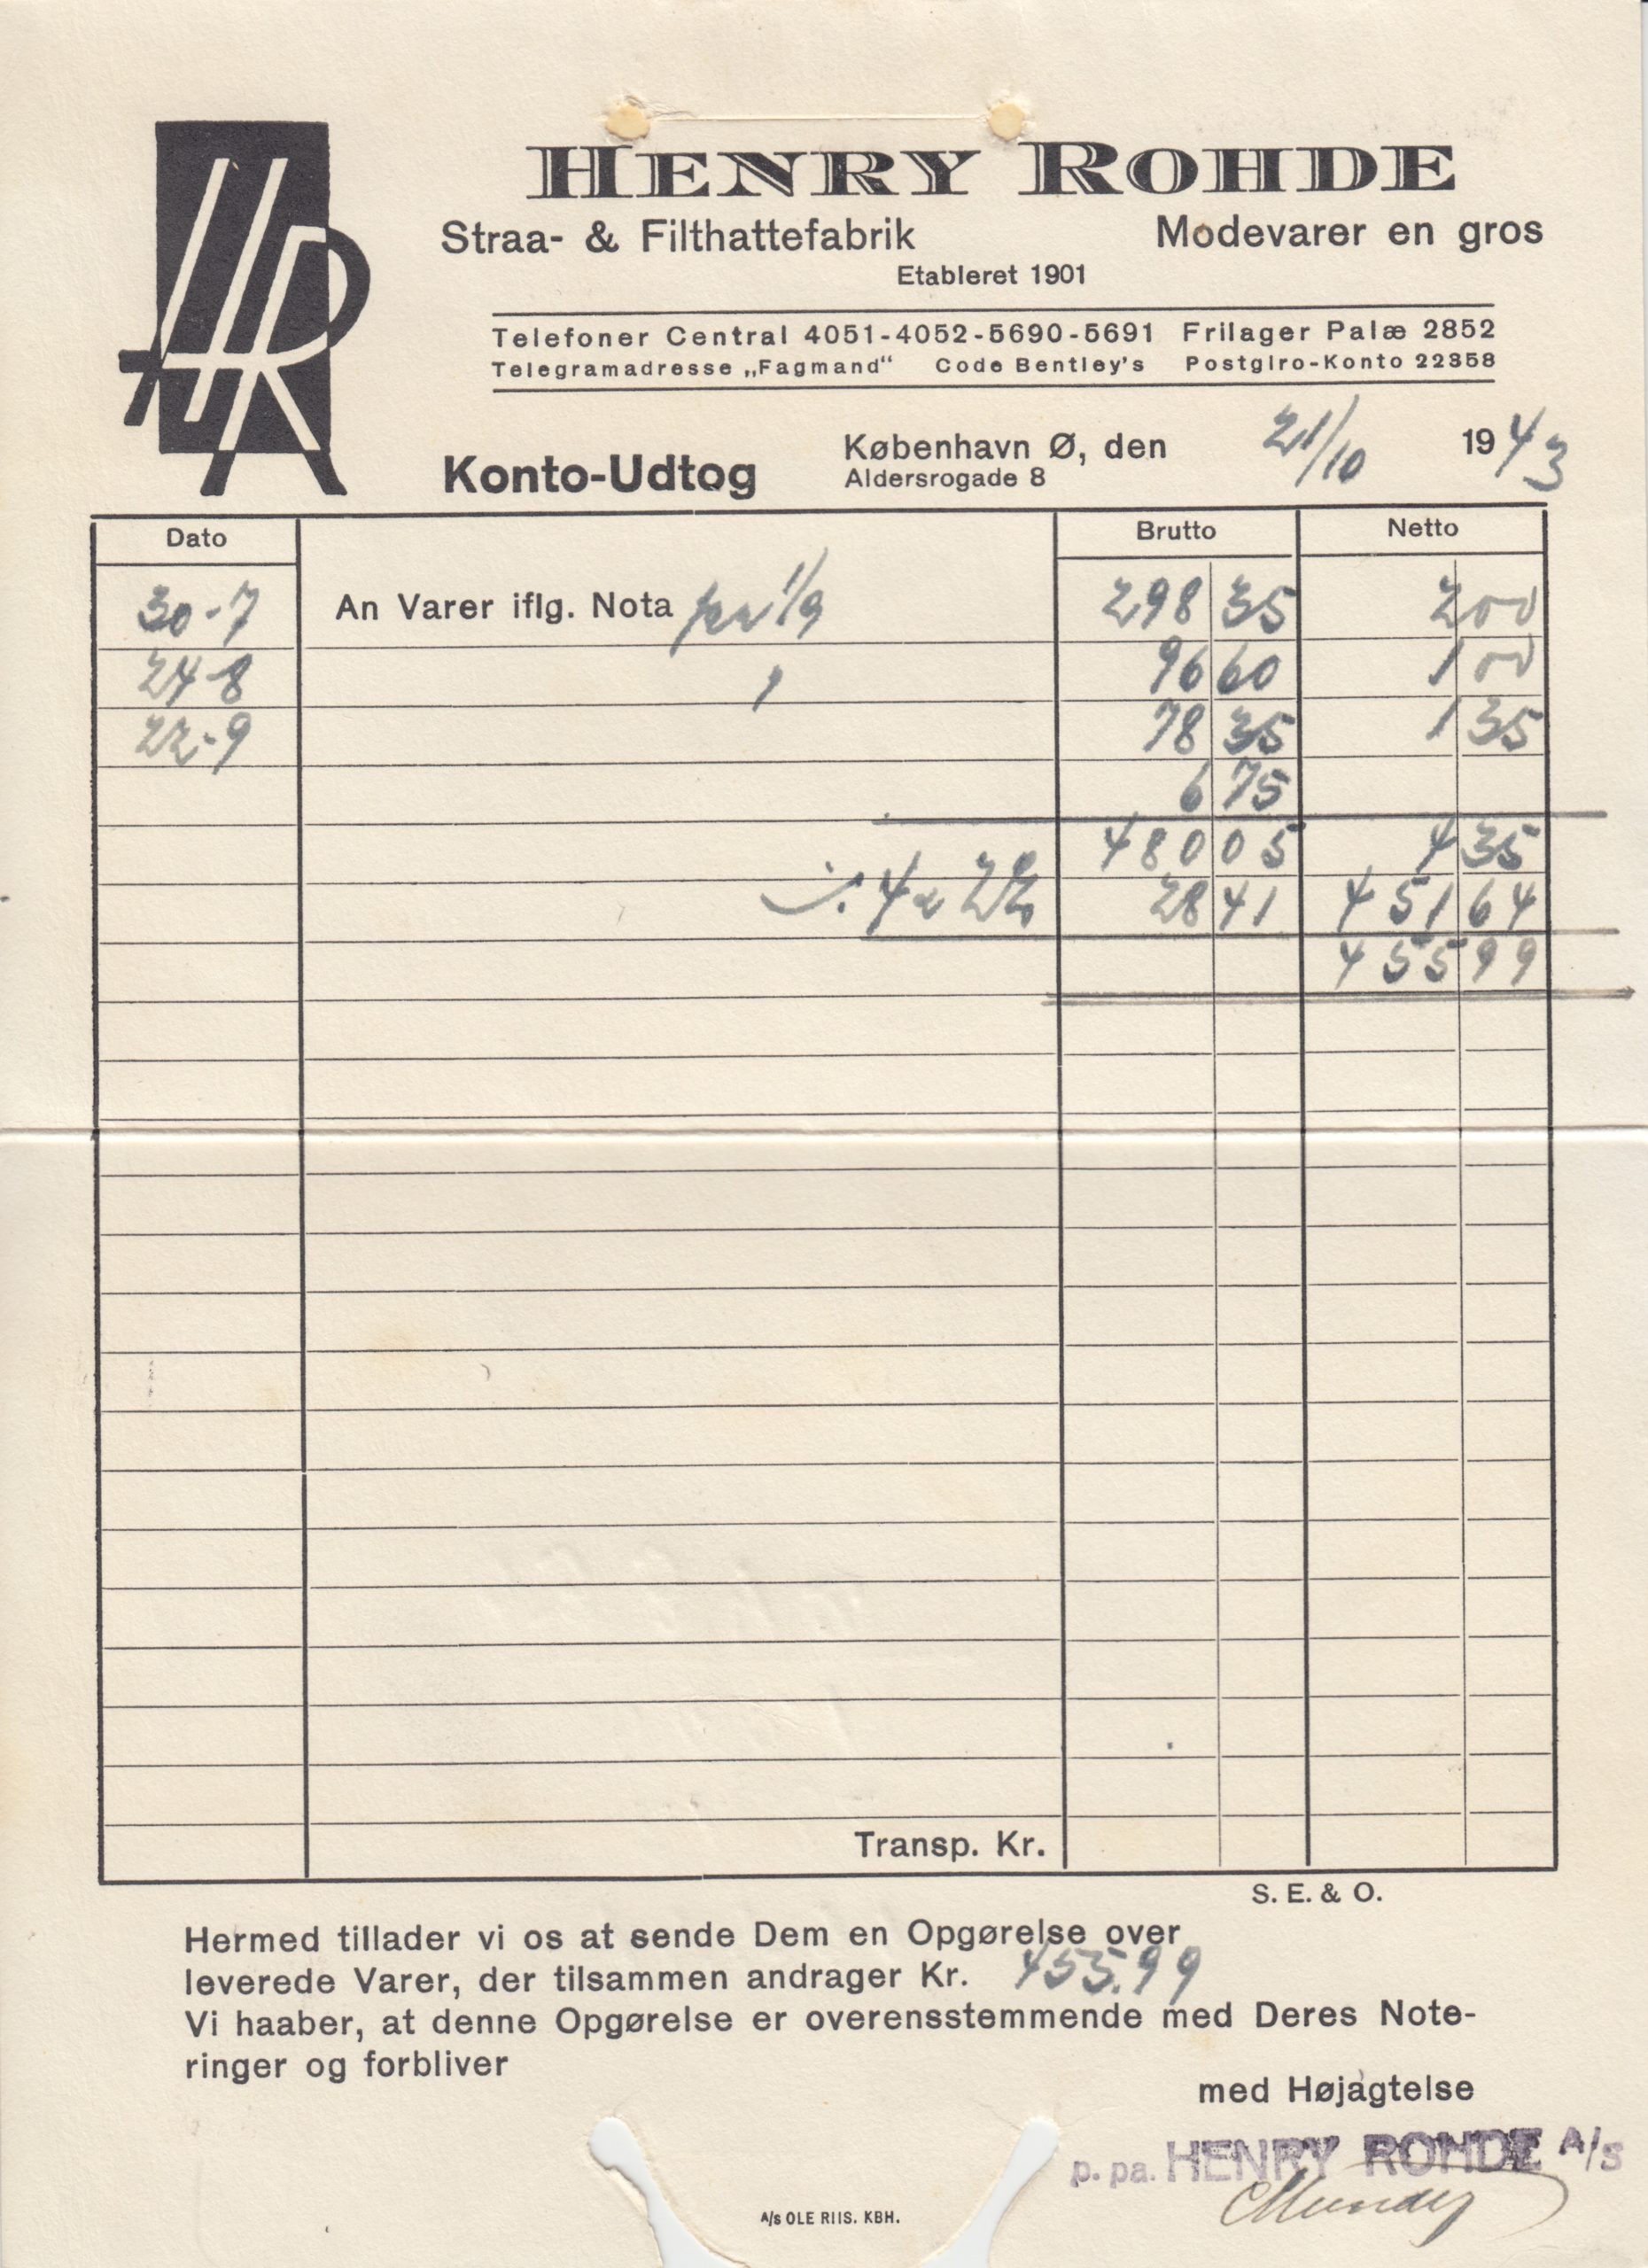 HR
HENRY ROHDE
Straa- & Filthattefabrik Modevarer en gros
Etableret 1901
Telefoner Central 4051-4052-5690-5691 Frilager Palæ 2852
Telegramadresse „Fagmand“ Code Bentley's Postgiro-Konto 22358
Konto-Udtog København Ø, den 21/10 1943
Aldersrogade 8
Dato Brutto Netto
30-7 An Varer iflg. Nota pr 1/9 298 35 2 00
24-8 " 96 60 1 00
22-9 78 35 1 35
6 75
480 05 4 35
28 41 451 64
455 99
Transp. Kr.
S. E. & O.
Hermed tillader vi os at sende Dem en Opgørelse over
leverede Varer, der tilsammen andrager Kr. 455.99
Vi haaber, at denne Opgørelse er overensstemmende med Deres Note-
ringer og forbliver
med Højagtelse
p. pa. HENRY ROHDE A/S
A/s OLE RIIS. KBH.